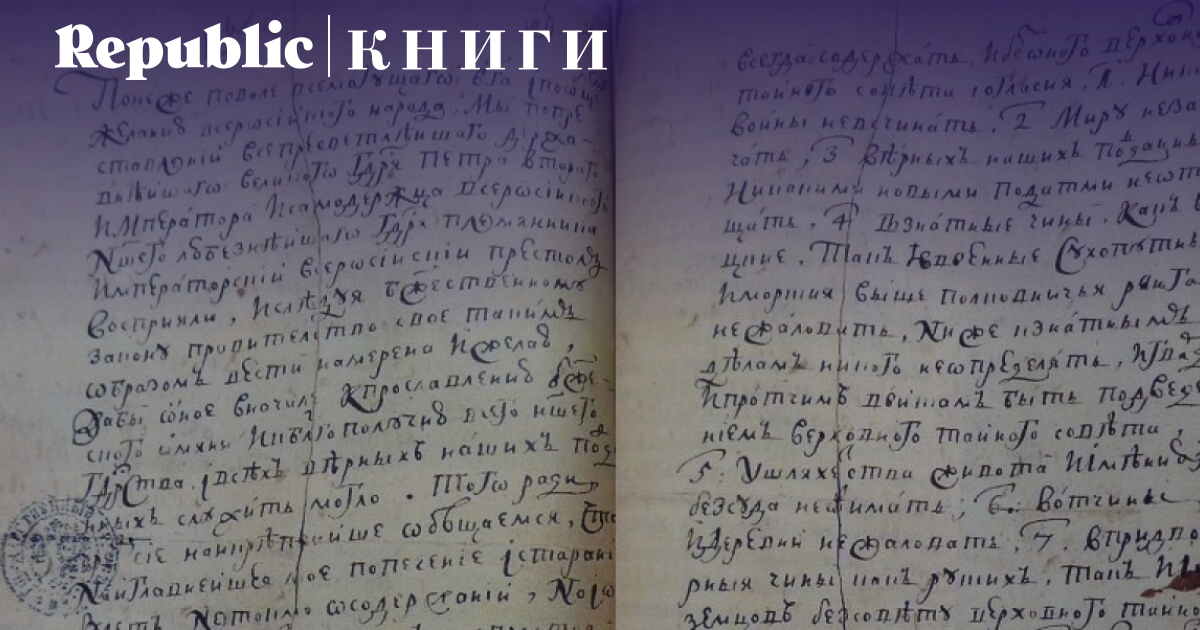 Republic КНИГИ
Понеже по воле всемогущаго бга
желания всероссійского народа. Мы по пре
ставленіи всепресветлѣишаго держа-
внѣишаго великого Гдря Петра второго
Императора И самодержца всеросійского
Ншего любезнѣишаго Гдря племянника
Императорскій всеросійскій престолъ
восприяли, И слѣдуя бжественному
закону правительство свое такимъ
образомъ вести намерена И желаю,
дабы оное вначале к прославлению бже-
ского имяни И благополучию всего ншего
Гдрства, и всѣхъ вѣрныхъ нашихъ под
нныхъ служить могло. Того ради,
сіе наикрѣпчаише обѣщаемся, что
Наиглавнеишее мое попечение и старан
не токмо о содержаніи,
всегда содержать. И бе оного верховн
тайного совѣта согласия. 1. Ни
войны невсчинать. 2 Миру не за
чать, 3 вѣрныхъ нашихъ подан
Никакими новыми податми неотя
щать, 4 взнатные чины. какъ в
цкие. такъ и военные сухопутн
И морския выше полковничья ранга
не жаловать, Ниже к знатнымъ
дѣламъ никого неопределять, Игва
И протчимъ воискамъ быть подвед
ніемъ верховного тайного совѣта,
5. У шляхетства живота И имѣния
без суда неотимать, 6. вотчины
И деревни не жаловать, 7. в придво
рныя чины какъ руских, такъ И
земцовъ без совѣту верховного тайно